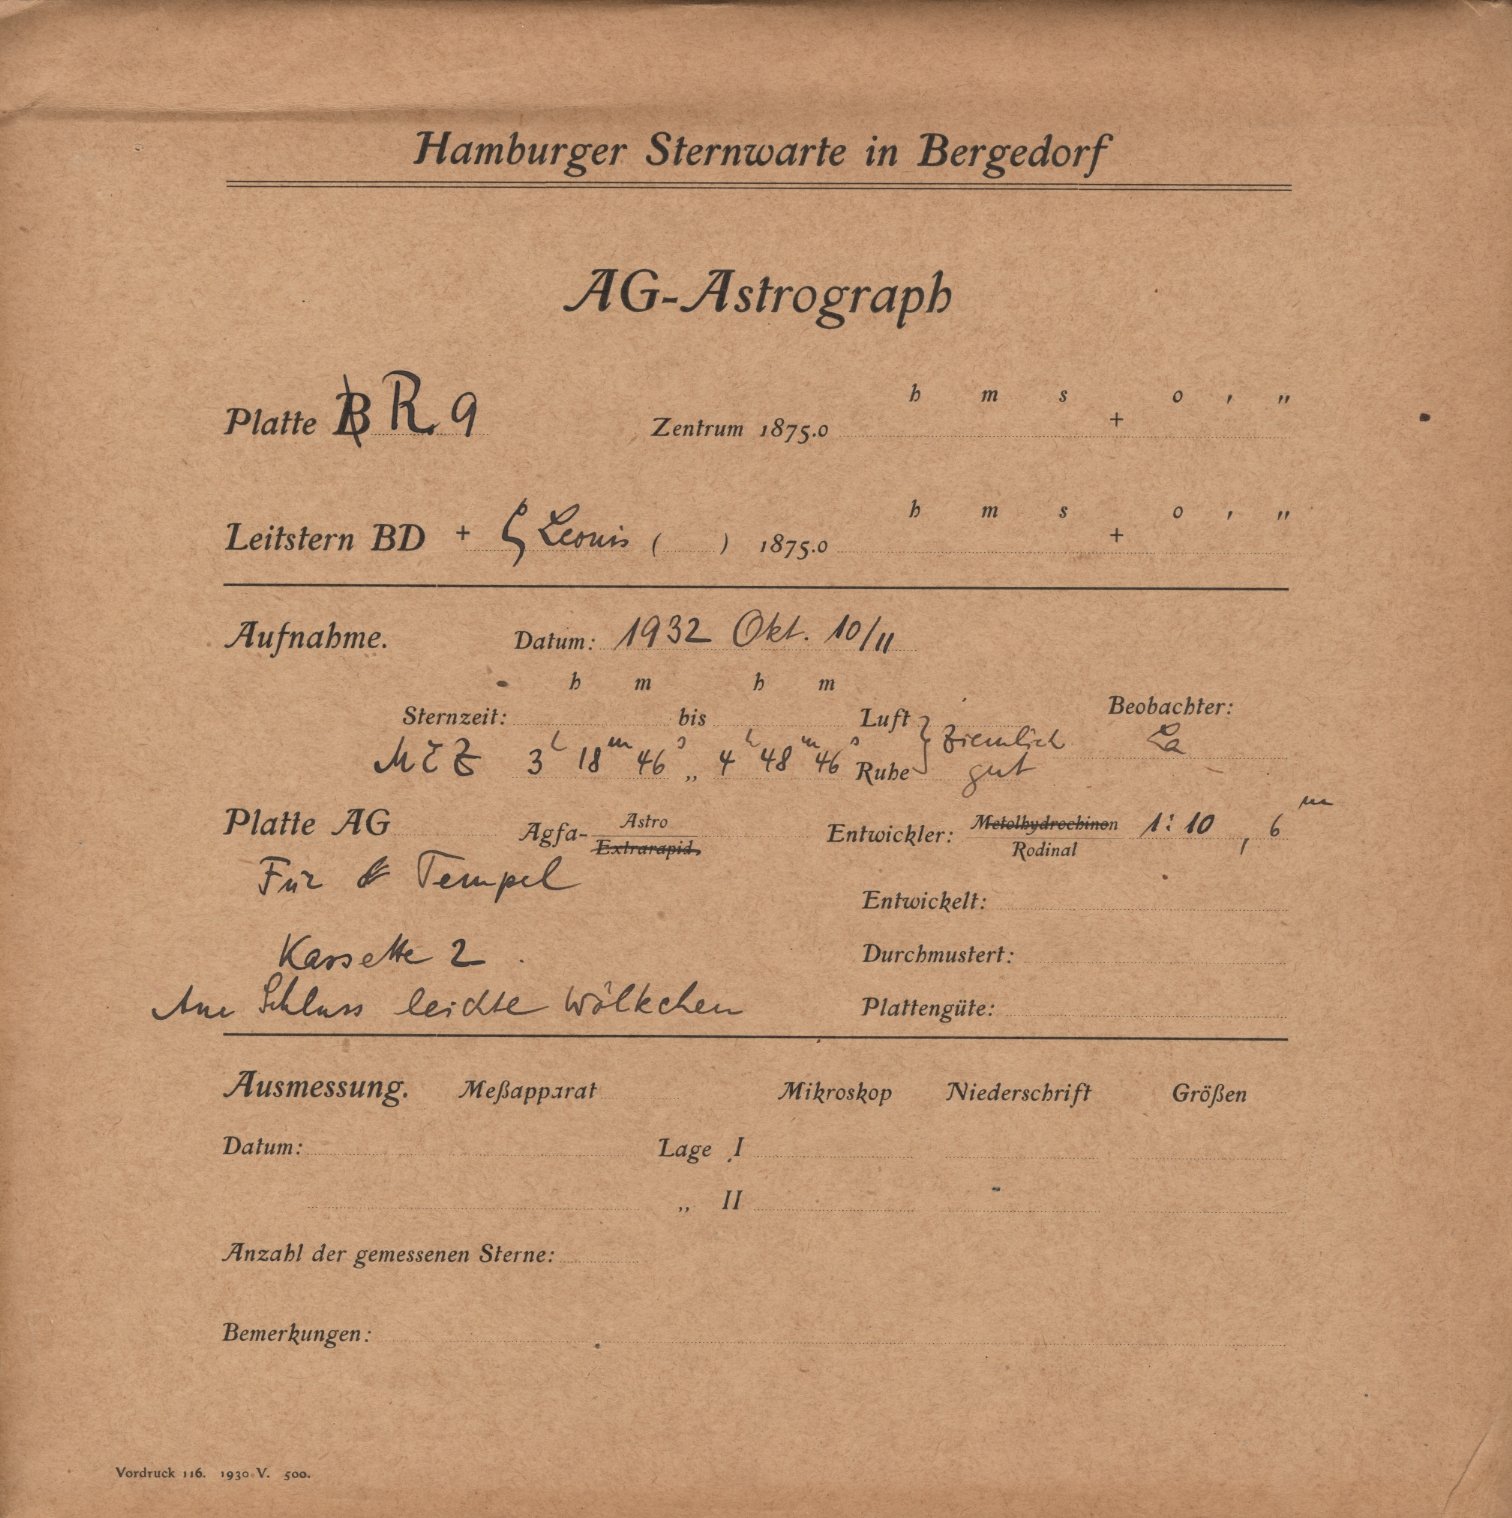 Hamburger Sternwarte in Bergedorf
AG-Astrograph
h m s o , „
Platte B R 9 Zentrum 1875.0 +
h m s o , „
Leitstern BD + ζ Leonis ( ) 1875.0 +
Aufnahme. Datum: 1932 Okt. 10/11
h m h m
Sternzeit: bis Luft } ziemlich Beobachter:
MEZ 3h 18m 46s „ 4h 48m 46s Ruhe gut La
Platte AG Agfa- Astro Extrarapid. Entwickler: Metolhydrochinon Rodinal 1:10, 6m
Für Tempel
Entwickelt:
Kassette 2. Durchmustert:
Am Schluss leichte Wölkchen Plattengüte:
Ausmessung. Meßapparat Mikroskop Niederschrift Größen
Datum: Lage I
„ II
Anzahl der gemessenen Sterne:
Bemerkungen:
Vordruck 116. 1930 V. 500.